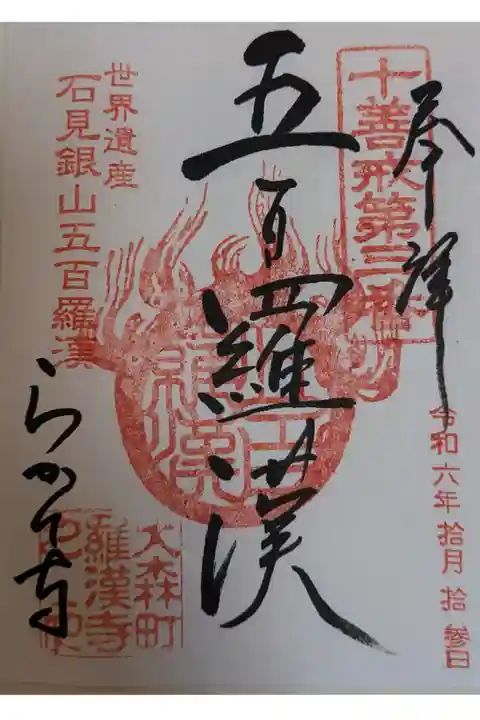 奉拝
十善戒第三番
令和六年 拾月 拾 參日
五百羅漢
世界遺産
石見銀山五百羅漢
らかん寺
大森町
羅漢寺